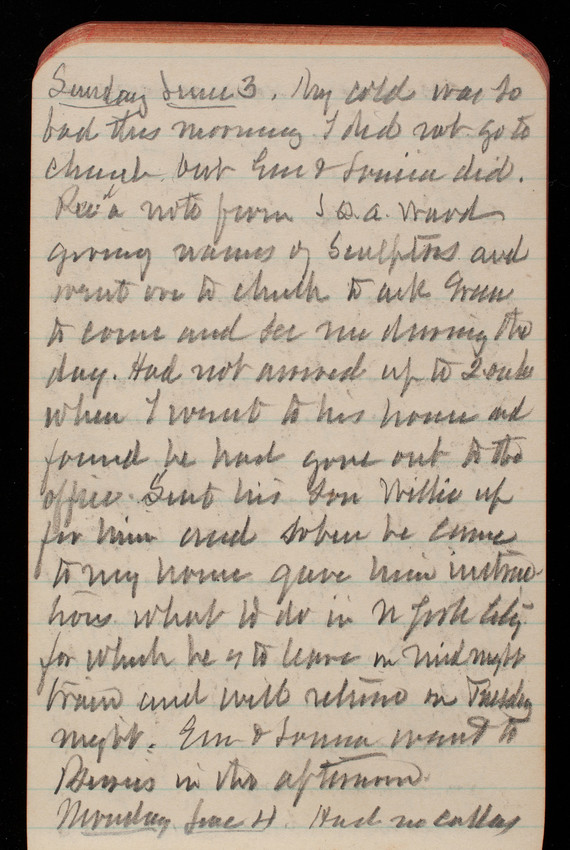 Sunday June 3. My cold was so
bad this morning I did not go to
church but Em & Louisa did.
Recd a note from J Q. A. Ward
giving names of Sculptors and
went over to church to ask Green
to come and see me during the
day. Had not arrived up to 2 oclk
when I went to his house and
found he had gone out to the
office. Sent his son Willie up
for him and when he came
to my house gave him instruc-
tions what to do in N York City
for which he is to leave on midnight
train and will return on Tuesday
night. Em & Louisa went to
in the afternoon.
Monday June 4. Had no callers